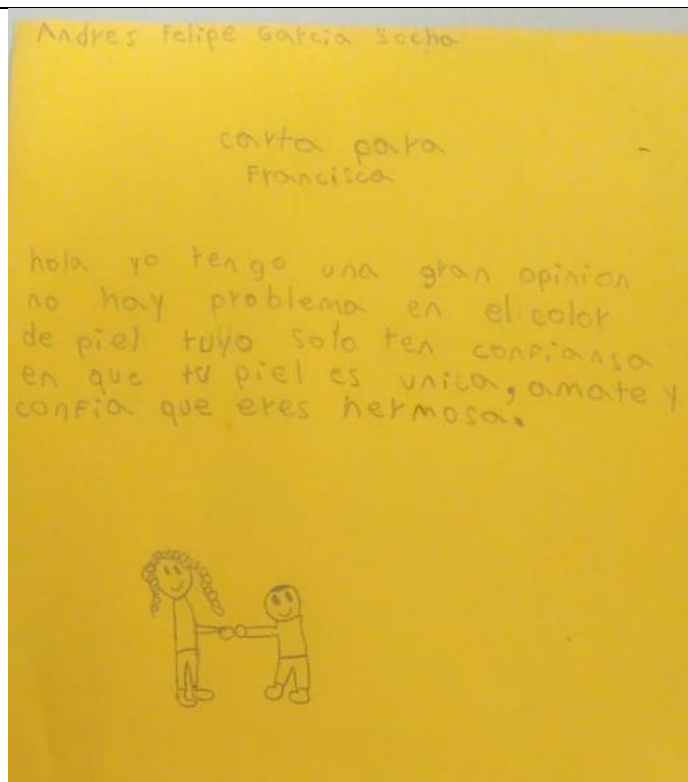 Andres Felipe Garcia Socha
carta para
Francisca
hola yo tengo una gran opinion
no hay problema en el color
de piel tuyo solo ten confiansa
en que tu piel es unica, amate y
confia que eres hermosa.